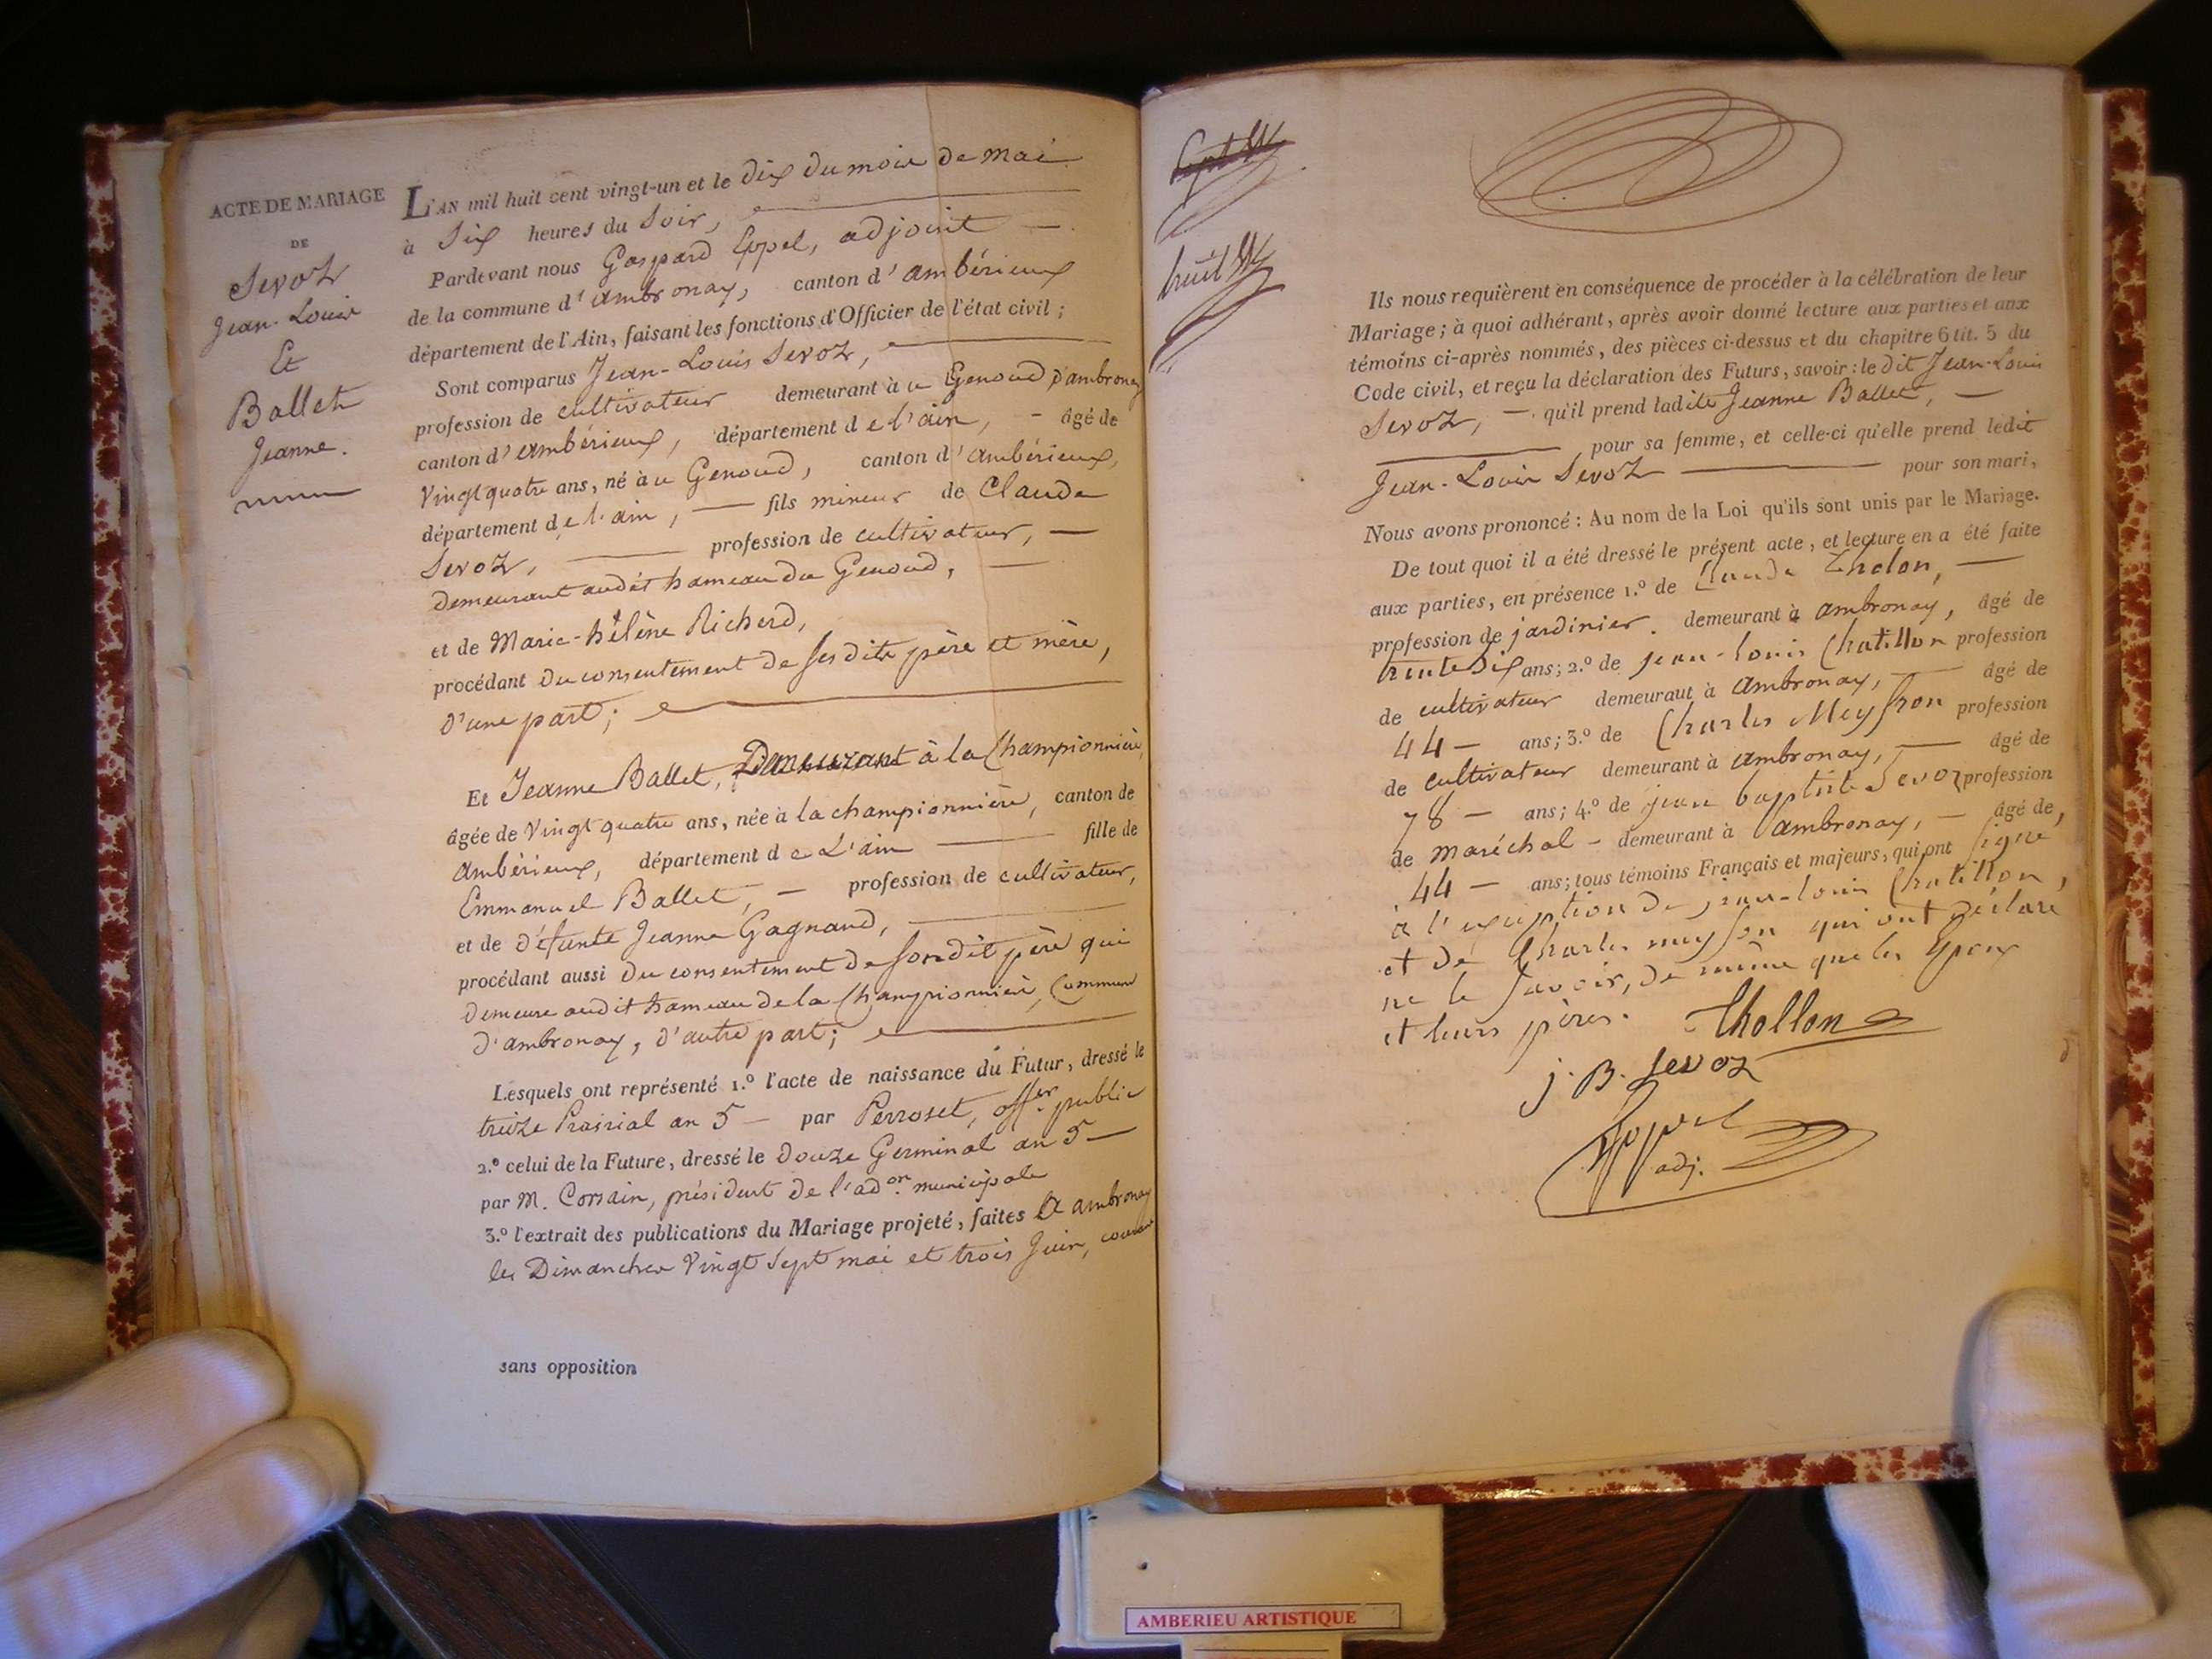 ACTE DE MARIAGE
DE
Sevoz
Jean-Louis
Et
Ballet
Jeanne.
L'AN mil huit cent vingt-un et le dix du mois de mai
à Six heures du Soir,
Pardevant nous Gaspard Eppel, adjoint
de la commune d'ambronay, canton d'ambérieux
département de l'Ain, faisant les fonctions d'Officier de l'état civil ;
Sont comparus Jean-Louis Sevoz,
profession de cultivateur demeurant à u Genoud d'ambronay
canton d'ambérieux, département de l'ain, - âgé de
Vingt quatre ans, né à u Genoud, canton d'ambérieux,
département de l'ain, — fils mineur de Claude
Sevoz, — profession de cultivateur, —
demeurant audit hameau du Genoud, —
et de Marie-hélène Richerd,
procédant du consentement de ses dits père et mère,
d'une part ;
Et Jeanne Ballet, Demeurant à la Championnière,
âgée de Vingt quatre ans, née à la championnière, canton de
ambérieux, département de L'ain — fille de
Emmanuel Ballet, — profession de cultivateur,
et de défunte Jeanne Gagnaud,
procédant aussi du consentement de son dit père qui
demeure audit hameau de la Championnière, Commune
d'ambronay, d'autre part ;
Lesquels ont représenté 1.º l'acte de naissance du Futur, dressé le
treize Prairial an 5 — par Perroset, offer public
2.º celui de la Future, dressé le douze Germinal an 5 —
par M. Corsain, président de l'adon municipale
3.º l'extrait des publications du Mariage projeté, faites à ambronay
les Dimanches Vingt Sept mai et trois Juin, courant
sans opposition
huit
Ils nous requièrent en conséquence de procéder à la célébration de leur
Mariage ; à quoi adhérant, après avoir donné lecture aux parties et aux
témoins ci-après nommés, des pièces ci-dessus et du chapitre 6 tit. 5 du
Code civil, et reçu la déclaration des Futurs, savoir : le dit Jean-Louis
Sevoz, — qu'il prend ladite Jeanne Ballet, —
— pour sa femme, et celle-ci qu'elle prend ledit
Jean-Louis Sevoz — pour son mari,
Nous avons prononcé : Au nom de la Loi qu'ils sont unis par le Mariage.
De tout quoi il a été dressé le présent acte, et lecture en a été faite
aux parties, en présence 1.º de Claude Tholon, —
profession de jardinier. demeurant à ambronay, âgé de
trente Six ans ; 2.º de jean-louis Chatillon profession
de cultivateur demeurant à ambronay, — âgé de
44 — ans ; 3.º de Charles Meysson profession
de cultivateur demeurant à ambronay, — âgé de
78 — ans ; 4.º de jean baptiste Sevoz profession
de maréchal - demeurant à ambronay, — âgé de
44 — ans ; tous témoins Français et majeurs, qui ont signé
à l'exception de jean-louis Chatillon,
et de Charles meysson qui ont déclaré
ne le savoir, de même que les Epoux
et leurs pères. Thollon
J. B. Sevoz
Eppel
adj.
AMBERIEU ARTISTIQUE